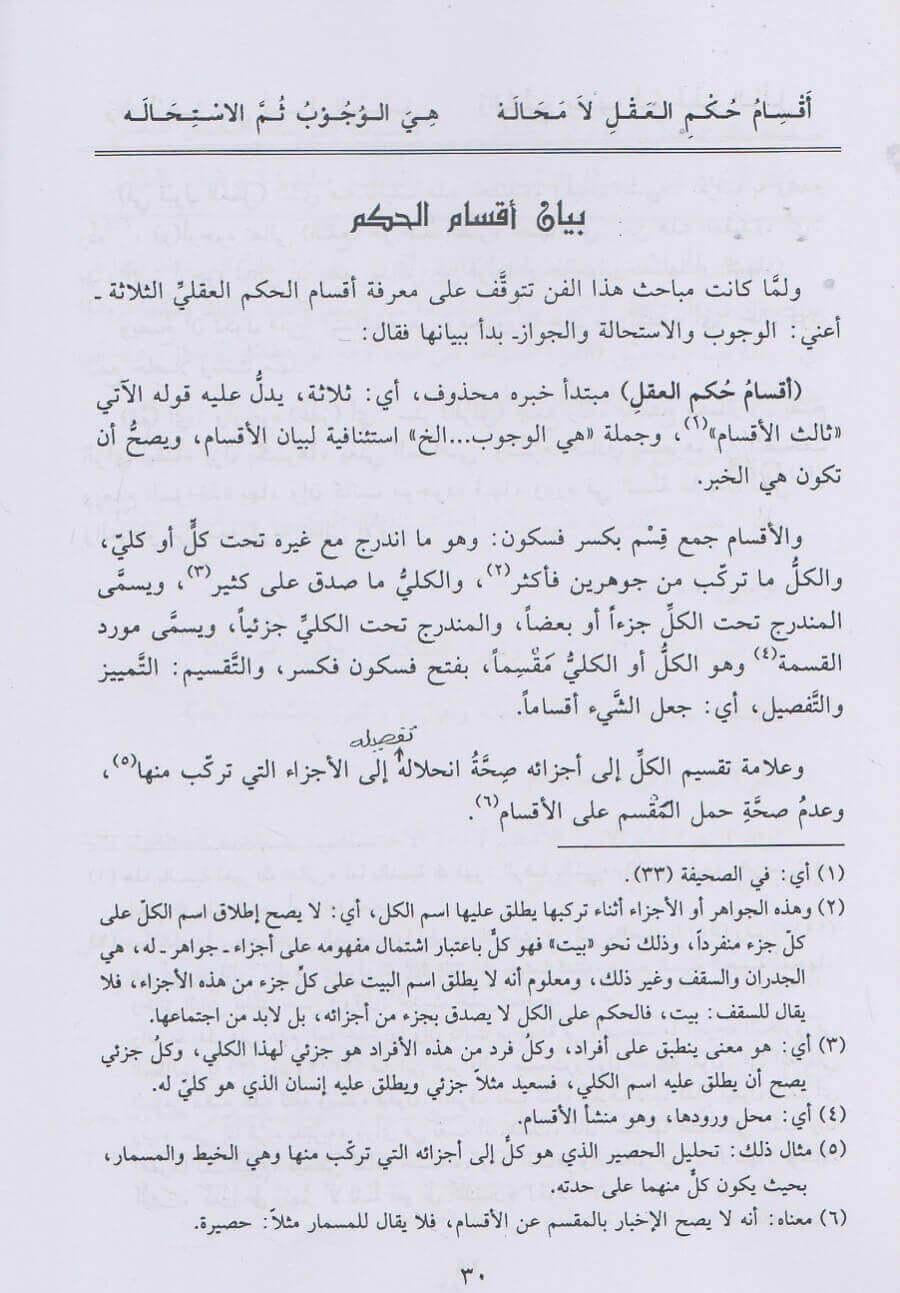 أَقْسِامُ حُكْمِ العَقْلِ لاَ مَحَالَهْ هِيَ الوُجُوْبُ ثُمَّ الاسْتِحَالَه
بيان أقسام الحكم
ولمَّا كانت مباحث هذا الفن تتوقَّف على معرفة أقسام الحكم العقليِّ الثلاثة ـ
أعني: الوجوب والاستحالة والجواز ـ بدأ ببيانها فقال:
(أقسامُ حُكمِ العقلِ) مبتدأ خبره محذوف، أي: ثلاثة، يدلُّ عليه قوله الآتي
«ثالث الأقسام»(١)، وجملة «هي الوجوب...الخ» استئنافية لبيان الأقسام، ويصحُّ أن
تكون هي الخبر.
والأقسام جمع قِسْم بكسر فسكون: وهو ما اندرج مع غيره تحت كلٍّ أو كليّ،
والكلُّ ما تركّب من جوهرين فأكثر(٢)، والكليُّ ما صدق على كثير(٣)، ويسمَّى
المندرج تحت الكلِّ جزءاً أو بعضاً، والمندرج تحت الكليِّ جزئياً، ويسمَّى مورد
القسمة(٤) وهو الكلُّ أو الكليُّ مَقْسِماً، بفتح فسكون فكسر، والتَّقسيم: التَّمييز
والتَّفصيل، أي: جعل الشَّيء أقساماً.
تفصيله
وعلامة تقسيم الكلِّ إلى أجزائه صِحَّةُ انحلاله إلى الأجزاء التي تركّب منها(٥)،
وعدمُ صحَّةِ حمل المَقْسم على الأقسام(٦).
(١) أي: في الصحيفة (٣٣).
(٢) وهذه الجواهر أو الأجزاء أثناء تركبها يطلق عليها اسم الكل، أي: لا يصح إطلاق اسم الكلّ على
كلّ جزء منفرداً، وذلك نحو «بيت» فهو كلٌّ باعتبار اشتمال مفهومه على أجزاء ـ جواهر ـ له، هي
الجدران والسقف وغير ذلك، ومعلوم أنه لا يطلق اسم البيت على كلِّ جزء من هذه الأجزاء، فلا
يقال للسقف: بيت، فالحكم على الكل لا يصدق بجزء من أجزائه، بل لابد من اجتماعها.
(٣) أي: هو معنى ينطبق على أفراد، وكلُ فرد من هذه الأفراد هو جزئي لهذا الكلي، وكلُ جزئي
يصح أن يطلق عليه اسم الكلي، فسعيد مثلاً جزئي ويطلق عليه إنسان الذي هو كليّ له.
(٤) أي: محل ورودها، وهو منشأ الأقسام.
(٥) مثال ذلك: تحليل الحصير الذي هو كلٌّ إلى أجزائه التي تركّب منها وهي الخيط والمسمار،
بحيث يكون كلٌّ منهما على حدته.
(٦) معناه: أنه لا يصح الإخبار بالمقسم عن الأقسام، فلا يقال للمسمار مثلاً: حصيرة.
٣٠